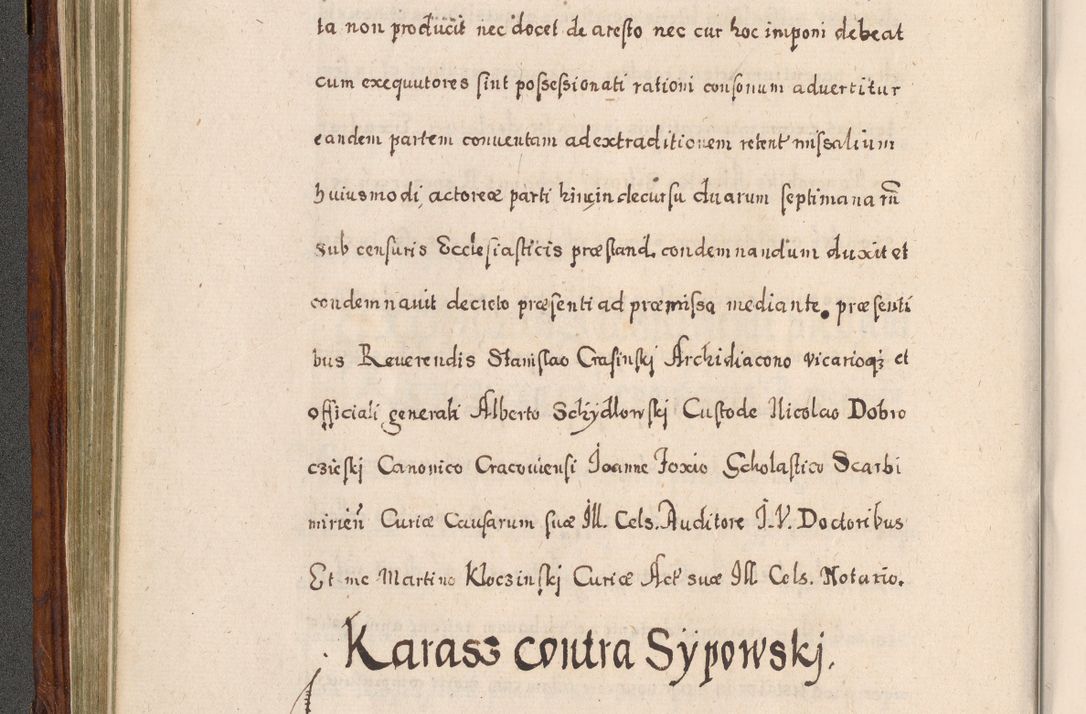 ta non producit nec docet de aresto nec cur hoc imponi debeat
cum exequutores sint possessionati rationi consonum advertitur
eandem partem conventam ad extraditionem retent missalium
huiusmodi, actoreæ parti hinc in decursu duarum septimanarū
sub censuris Ecclesiasticis præstand. condemnandum duxit et
condemnavit decreto præsenti ad præmissa mediante. præsenti
bus Reverendis Stanislao Crasinskj Archidiacono vicarioqꝫ et
officiali generali Alberto Schydłowskj Custode Nicolao Dobro
czieskj Canonico Cracoviensi Joanne Foxio Scholastico Scarbi
mirień Curiæ Causarum suæ Ill. Cels. Auditore I.V. Doctoribus
Et me Martino Kłoczinskj Curiæ Act suæ Ill Cels. Notario.
Karass contra Sÿpowskj.